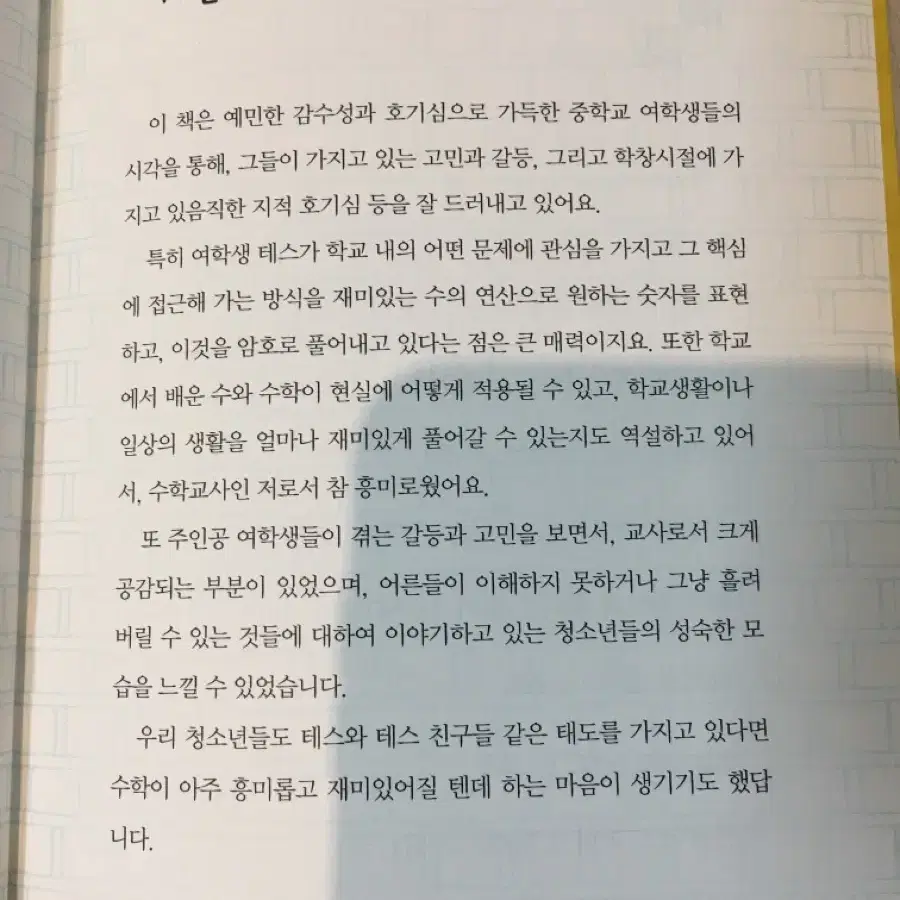 이 책은 예민한 감수성과 호기심으로 가득한 중학교 여학생들의
시각을 통해, 그들이 가지고 있는 고민과 갈등, 그리고 학창시절에 가
지고 있음직한 지적 호기심 등을 잘 드러내고 있어요.
특히 여학생 테스가 학교 내의 어떤 문제에 관심을 가지고 그 핵심
에 접근해 가는 방식을 재미있는 수의 연산으로 원하는 숫자를 표현
하고, 이것을 암호로 풀어내고 있다는 점은 큰 매력이지요. 또한 학교
에서 배운 수와 수학이 현실에 어떻게 적용될 수 있고, 학교생활이나
일상의 생활을 얼마나 재미있게 풀어갈 수 있는지도 역설하고 있어
서, 수학교사인 저로서 참 흥미로웠어요.
또 주인공 여학생들이 겪는 갈등과 고민을 보면서, 교사로서 크게
공감되는 부분이 있었으며, 어른들이 이해하지 못하거나 그냥 흘려
버릴 수 있는 것들에 대하여 이야기하고 있는 청소년들의 성숙한 모
습을 느낄 수 있었습니다.
우리 청소년들도 테스와 테스 친구들 같은 태도를 가지고 있다면
수학이 아주 흥미롭고 재미있어질 텐데 하는 마음이 생기기도 했답
니다.